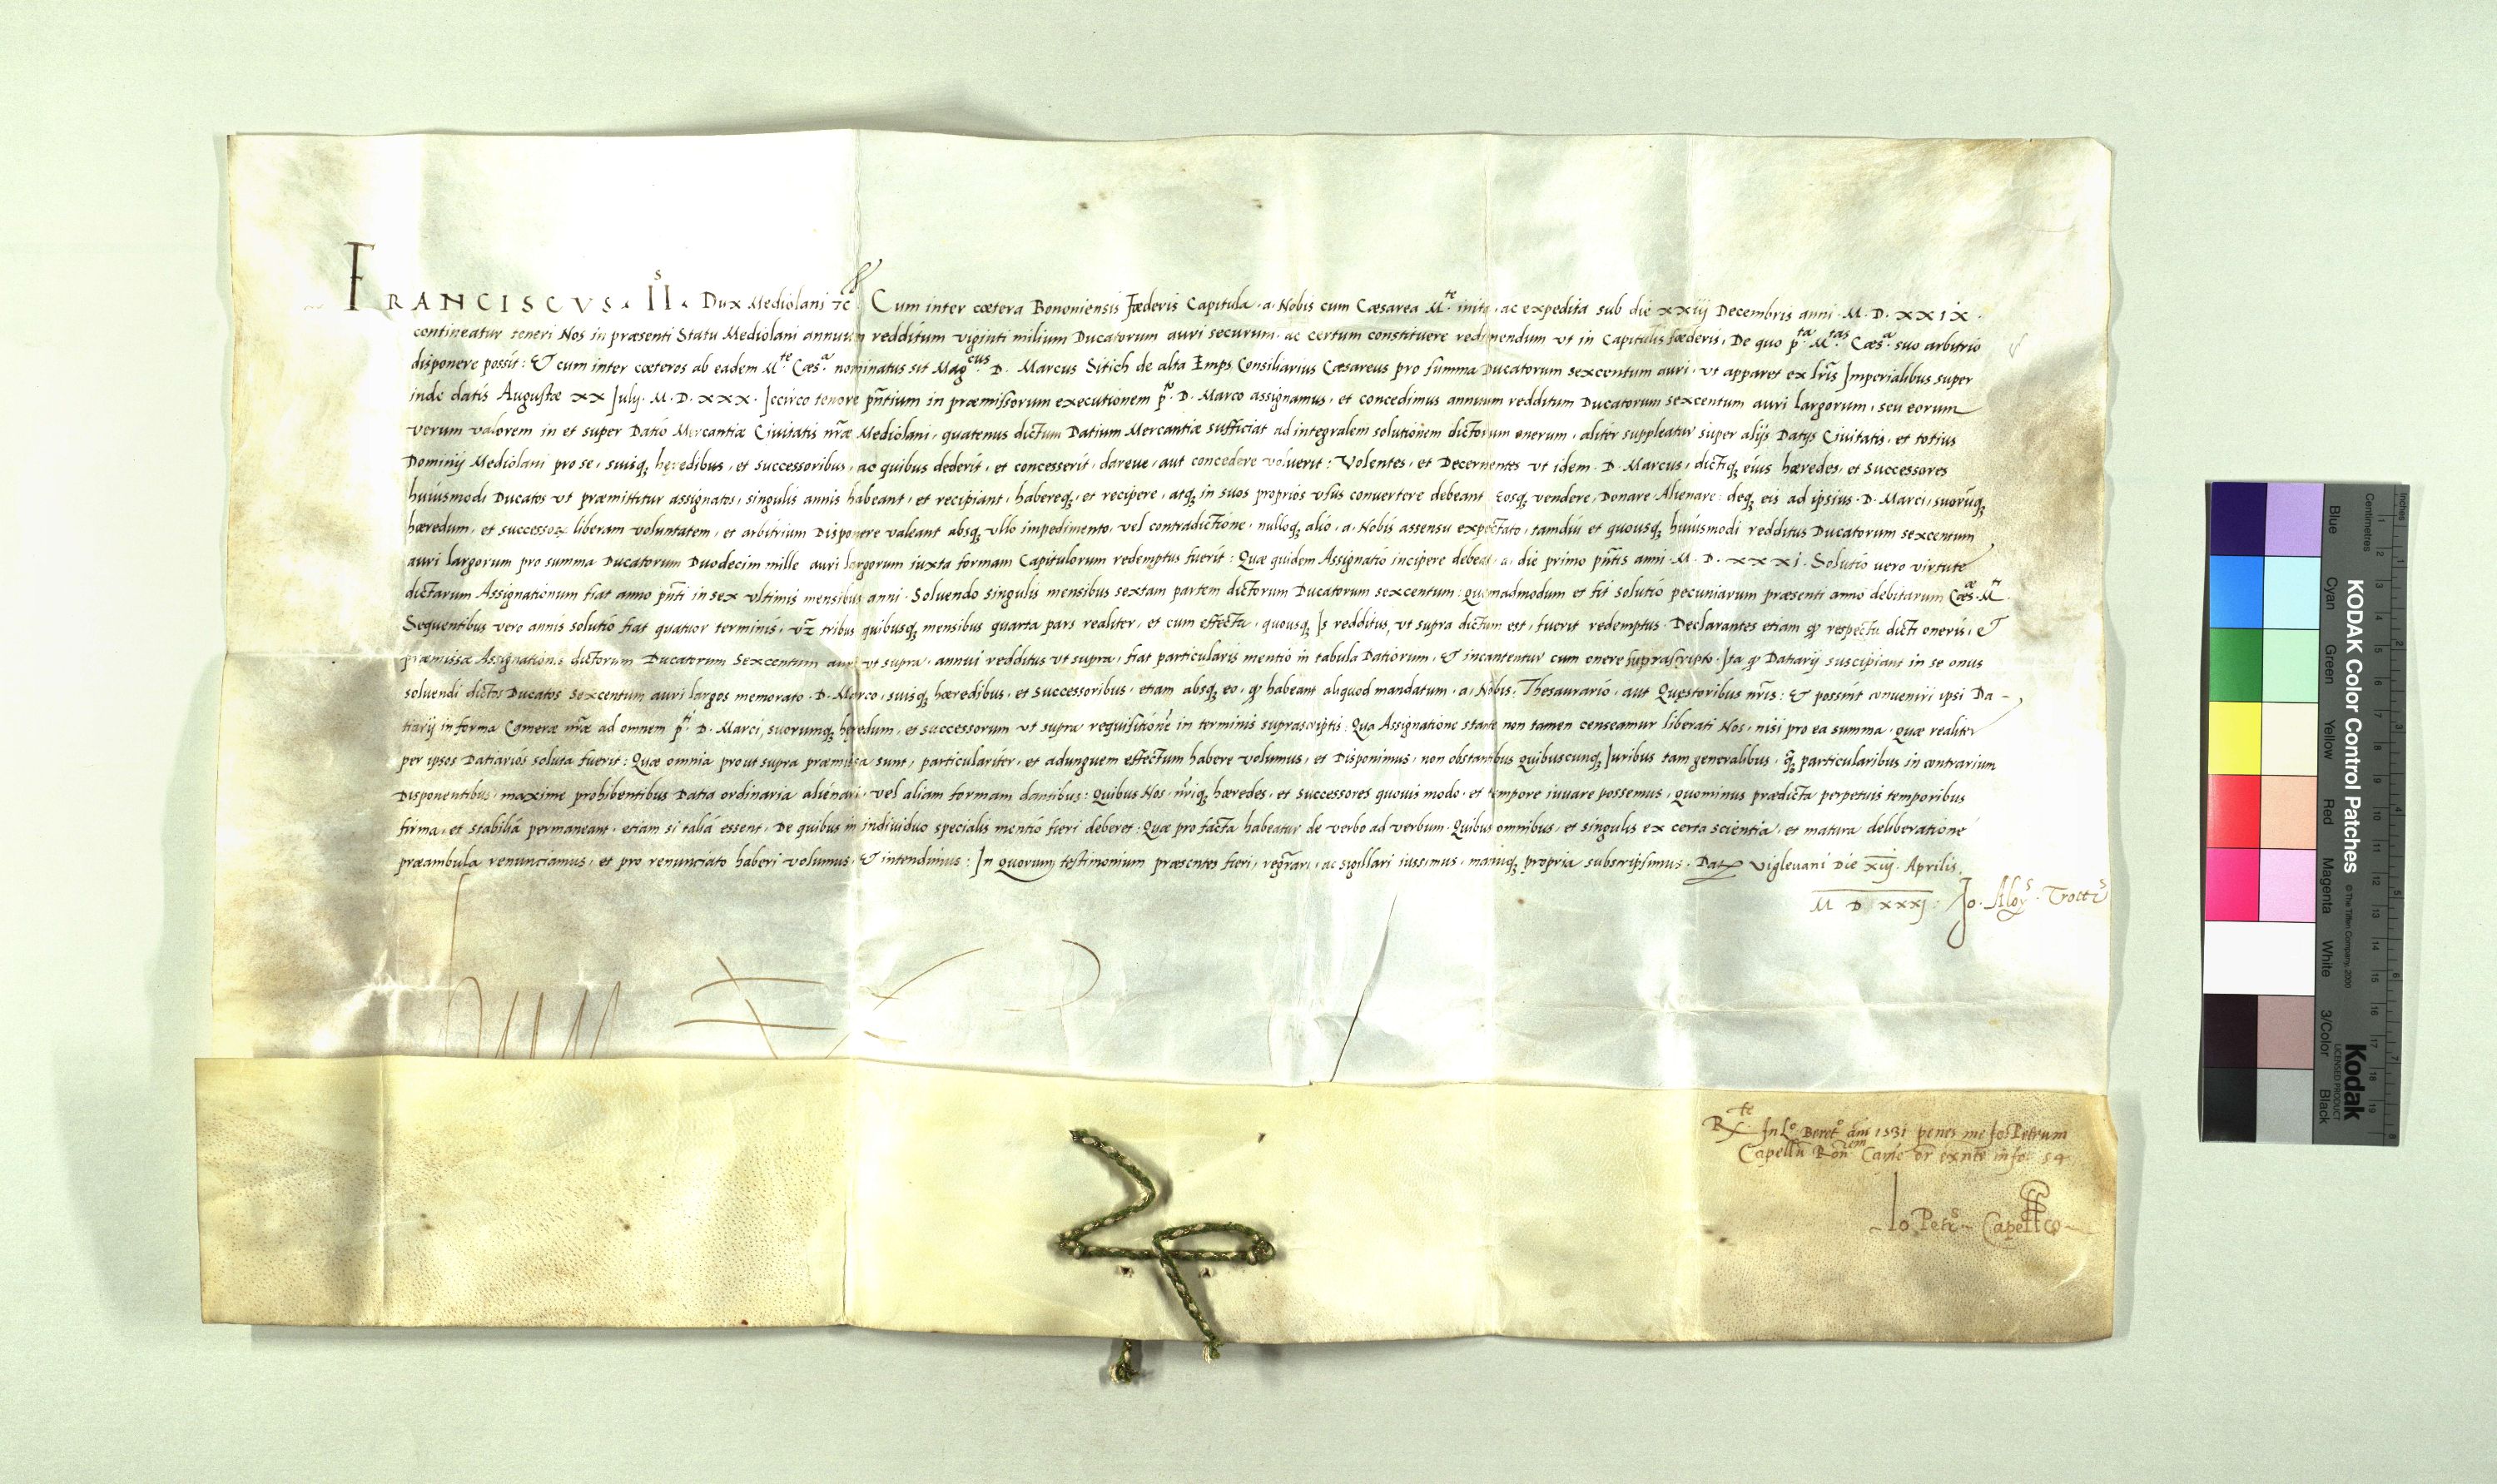 FRANCISCVS. II.s Dux Mediolani &c. Cum inter cœtera Bononiensis Fœderis Capitula, a, Nobis cum Cæsarea M.te inita, ac expedita sub die xxiij Decembris anni .M.D.XXIX.
contineatur teneri Nos in præsenti Statu Mediolani annuum redditum viginti milium Ducatorum auri securum, ac certum constituere redimendum ut in Capitulis fœderis, De quo p.ta M.tas Cæs.a suo arbitrio
disponere possit: Et cum inter cœteros ab eadem M.te Cæs.a nominatus sit Mag.cus D. Marcus Sitich de alta Emps Consiliarius Cæsareus pro summa Ducatorum sexcentum auri, ut apparet ex lr̃is Imperialibus super
inde datis Augustæ xx July. M.D.XXX. Iccirco tenore pñtium in præmissorum executionem p.to D. Marco assignamus, et concedimus annuum redditum Ducatorum sexcentum auri largorum, seu eorum
verum valorem in et super Datio Mercantiæ Civitatis nr̃æ Mediolani, quatenus dictum Datium Mercantiæ sufficiat ad integralem solutionem dictorum onerum, aliter suppleatur super alijs Datys Civitatis, et totius
Dominij Mediolani pro se, suisq, hęredibus, et successoribus, ac quibus dederit, et concesserit, dareue, aut concedere voluerit: Volentes, et Decernentes ut idem D. Marcus, dictiq, eius hæredes, et successores
huiusmodi Ducatos ut præmittitur assignatos, singulis annis habeant, et recipiant, habereq, et recipere, atq, in suos proprios usus convertere debeant Eosq, vendere, Donare, Alienare: deq, eis ad ipsius D. Marci, suorũq,
hæredum, et successoꝝ liberam voluntatem, et arbitrium Disponere valeant absq, ullo impedimento, vel contradictione, nulloq, alio, a, Nobis assensu expectato, tamdiu et quousq, huiusmodi redditus Ducatorum sexcentum
auri largorum pro summa Ducatorum Duodecim mille auri largorum iuxta formam Capitulorum redemptus fuerit: Quæ quidem Assignatio incipere debeat, a, die primo pñtis anni .M.D.XXXI. Solutio vero virtute
dictarum Assignationum fiat anno pñti in sex ultimis mensibus anni. Soluendo singulis mensibus sextam partem dictorum Ducatorum sexcentum: quemadmodum et fit solutio pecuniarum præsenti anno debitarum Cæs.æ M.ti
Sequentibus vero annis solutio fiat quatuor terminis, vz̃ tribus quibusq, mensibus quarta pars realiter, et cum effectu, quousq, Is redditus, ut supra dictum est, fuerit redemptus. Declarantes etiam ꝙ respectu dicti oneris, &
præmissæ Assignationis dictorum Ducatorum Sexcentum auri ut supra, annui redditus ut supra, fiat particularis mentio in tabula Datiorum, & incantentur cum onere suprascripto. Ita ꝙ Datiarij suscipiant in se onus
soluendi dictos Ducatos sexcentum auri largos memorato D. Marco, suisq, hæredibus, et successoribus, etiam absq, eo, ꝙ habeant aliquod mandatum, a, Nobis, Thesaurario, aut Quęstoribus nr̃is: & possint conveniri ipsi Da-
tiarij in forma Cameræ nr̃æ ad omnem p.ti D. Marci, suorumq, hęredum, et successorum ut supra requisitionẽ in terminis suprascriptis. Qua Assignatione stante non tamen censeamur liberati Nos, nisi pro ea summa, quæ realiter
per ipsos Datiarios soluta fuerit: Quæ omnia prout supra præmissa sunt, particulariter, et adunguem effectum habere volumus, et Disponimus, non obstantibus quibuscunq, Iuribus tam generalibus, ꝙ̃ particularibus in contrarium
Disponentibus, maxime prohibentibus Datia ordinaria alienari, vel aliam formam dantibus: Quibus Nos, nr̃iq, hæredes, et successores quouis modo, et tempore iuuare possemus, quominus prædicta perpetuis temporibus
firma, et stabilia permaneant, etiam si talia essent, De quibus in individuo specialis mentio fieri deberet: Quæ pro facta habeatur de verbo ad verbum. Quibus omnibus, et singulis ex certa scientia, et matura deliberatione
præambula renunciamus, et pro renunciato haberi volumus, & intendimus: In quorum testimonium præsentes fieri, regr̃ari, ac sigillari iussimus, manuq, propria subscripsimus. Dat Viglevani Die xiij. Aprilis
M D XXXJ: Jo. Aloy.s Trott.s
R.te In L.o Beret.o añi 1531 penes me Jo: Petrum
Capellũ Rõn Came or exñte in fo 54
Jo Petr.s Capell
KODAK Color Control Patches
© The Tiffen Company, 2000
Kodak
LICENSED PRODUCT
Blue
Cyan
Green
Yellow
Red
Magenta
White
3/Color
Black
Inches
Centimetres